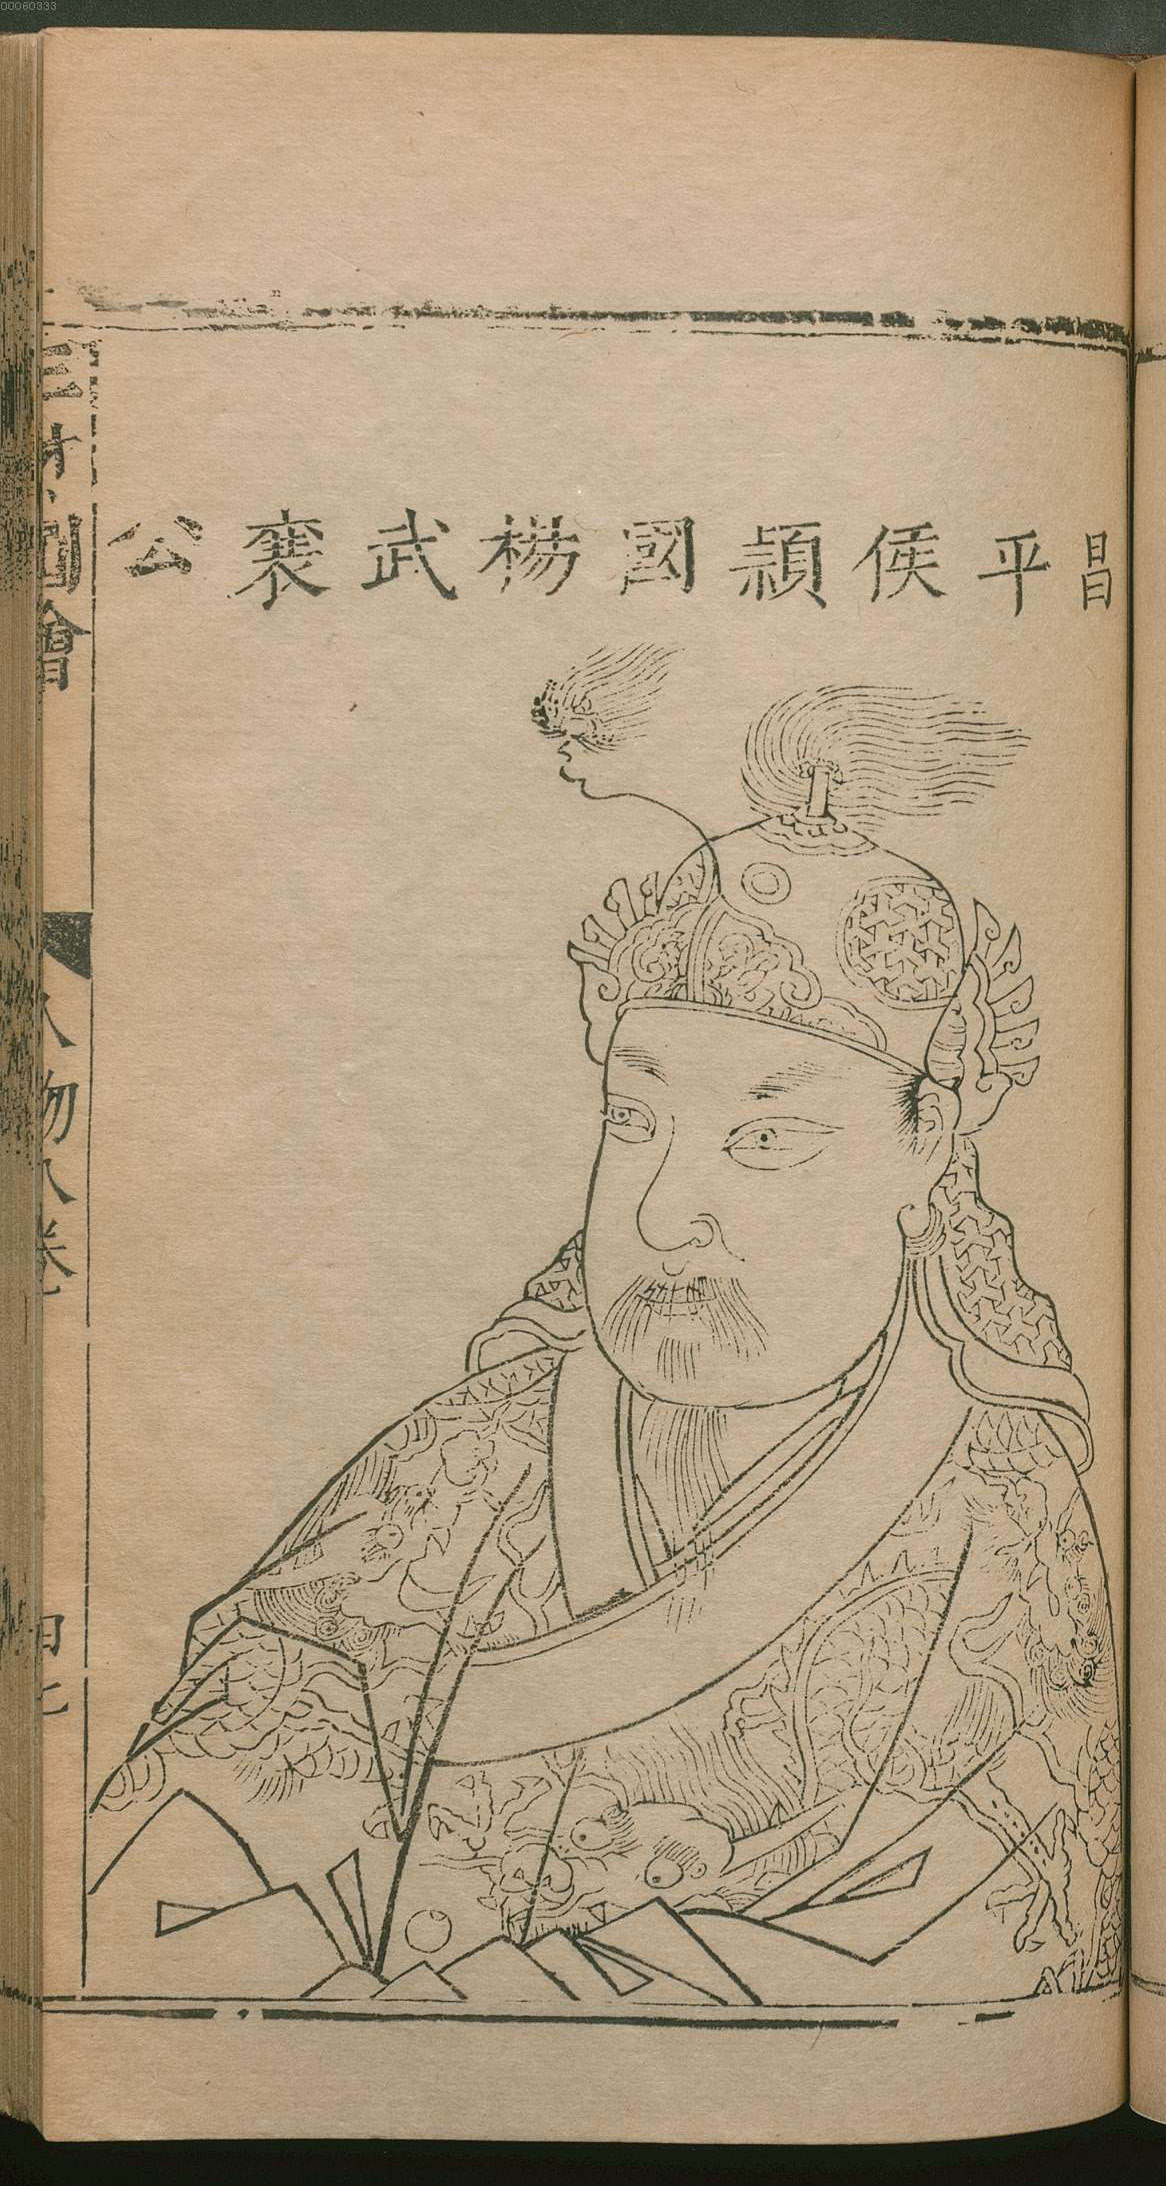 00060333
昌平侯頴國楊武襄公
三才圖會
人物八卷